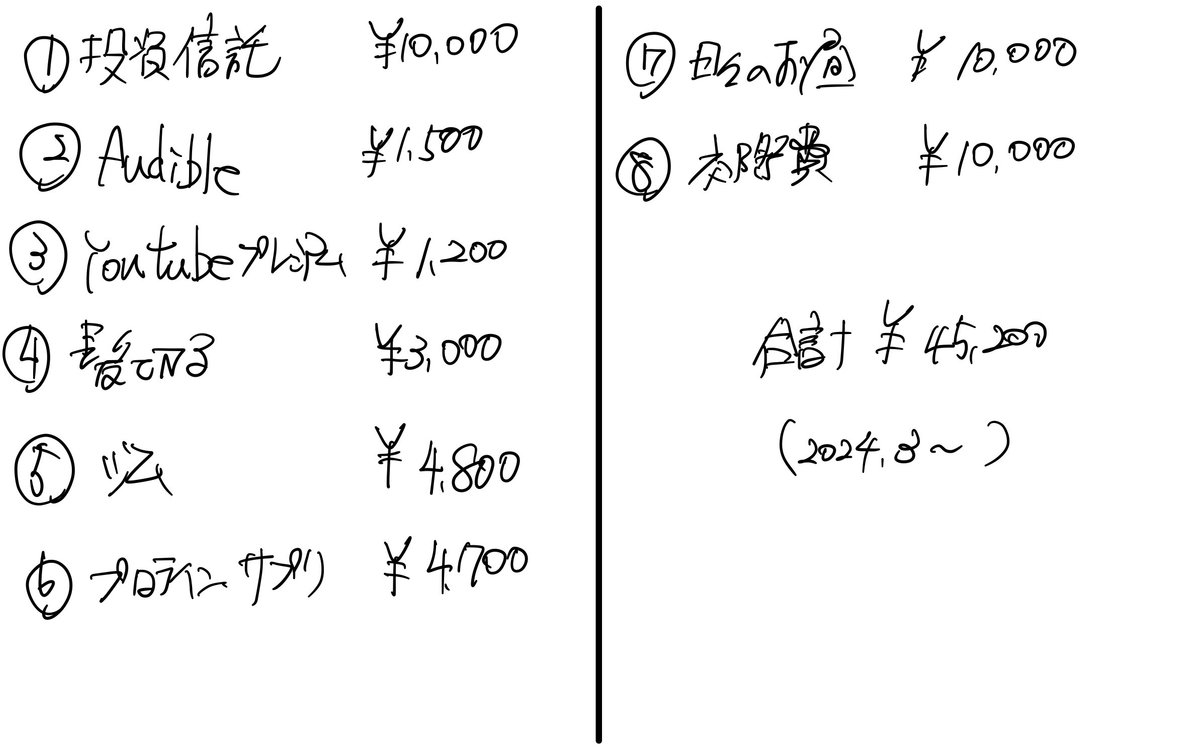 ① 投資信託 ¥10,000
② Audible ¥1,500
③ Youtubeプレミアム ¥1,200
④ ¥3,000
⑤ ジム ¥4,800
⑥ プロテイン サプリ ¥4,700
⑦ 日々のお昼 ¥10,000
⑧ 交際費 ¥10,000
合計 ¥45,200
(2024.8~)